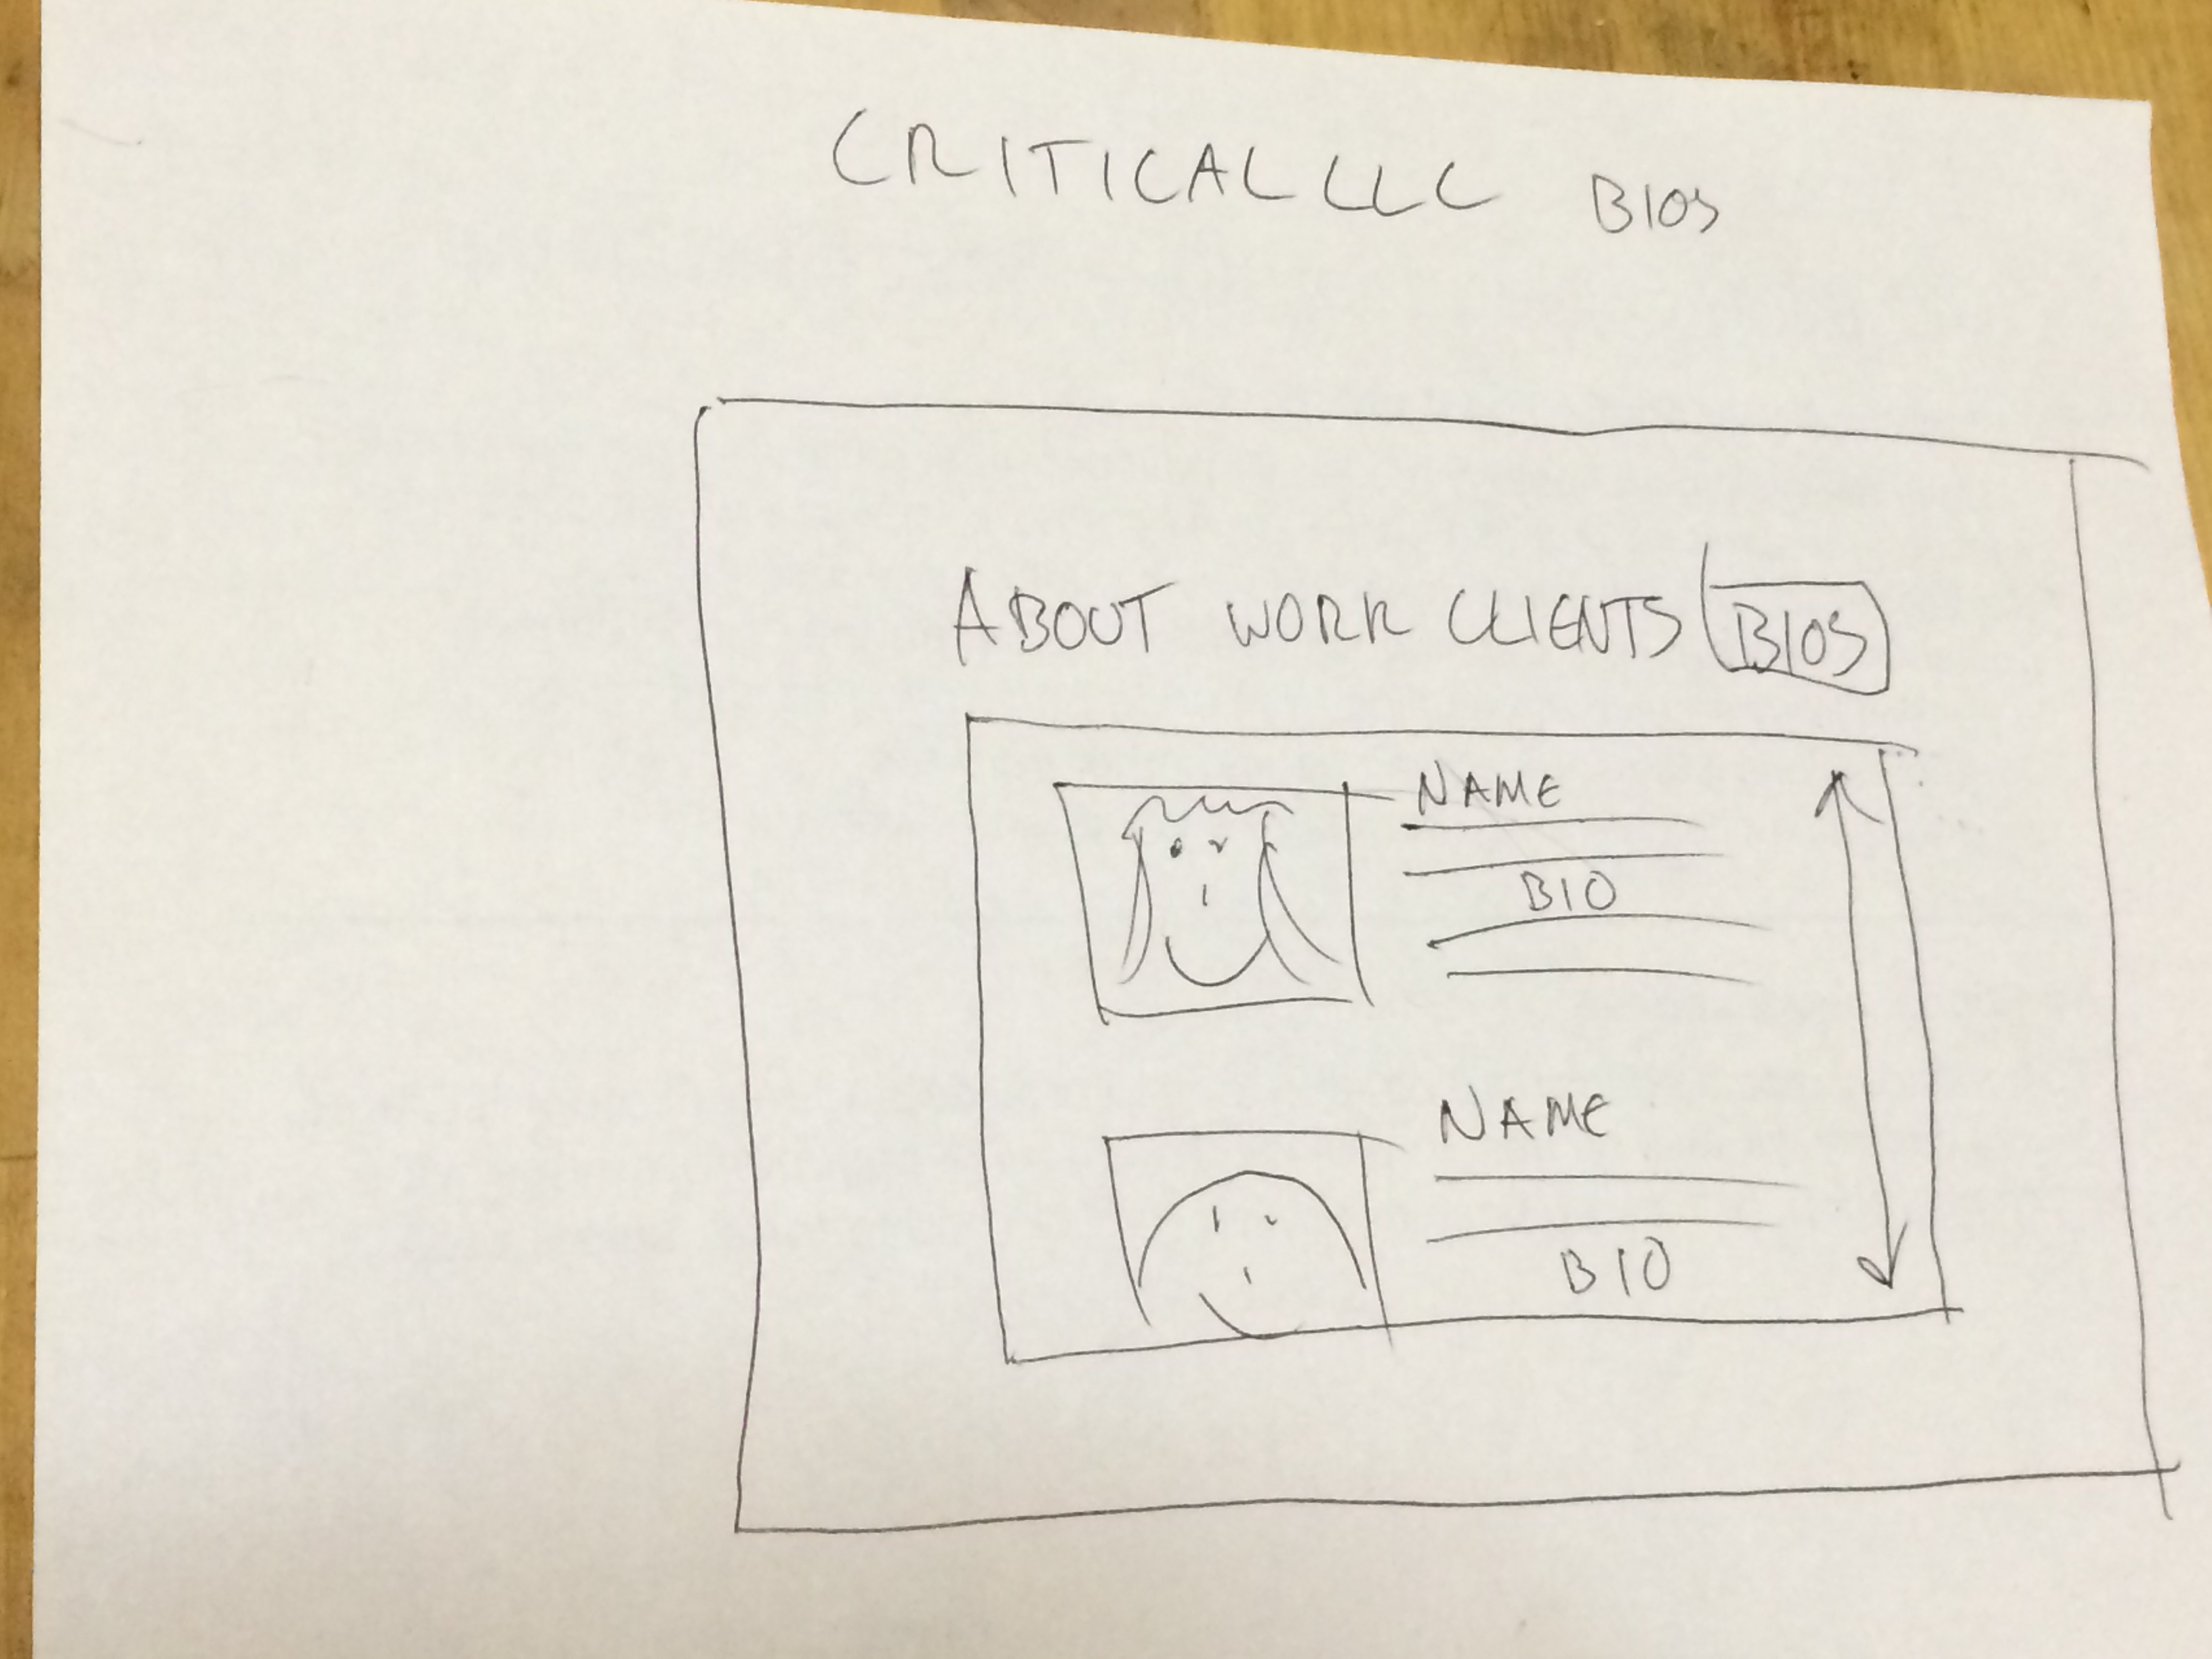 CRITICAL LLC BIOS
ABOUT WORK CLIENTS BIOS
NAME
BIO
NAME
BIO